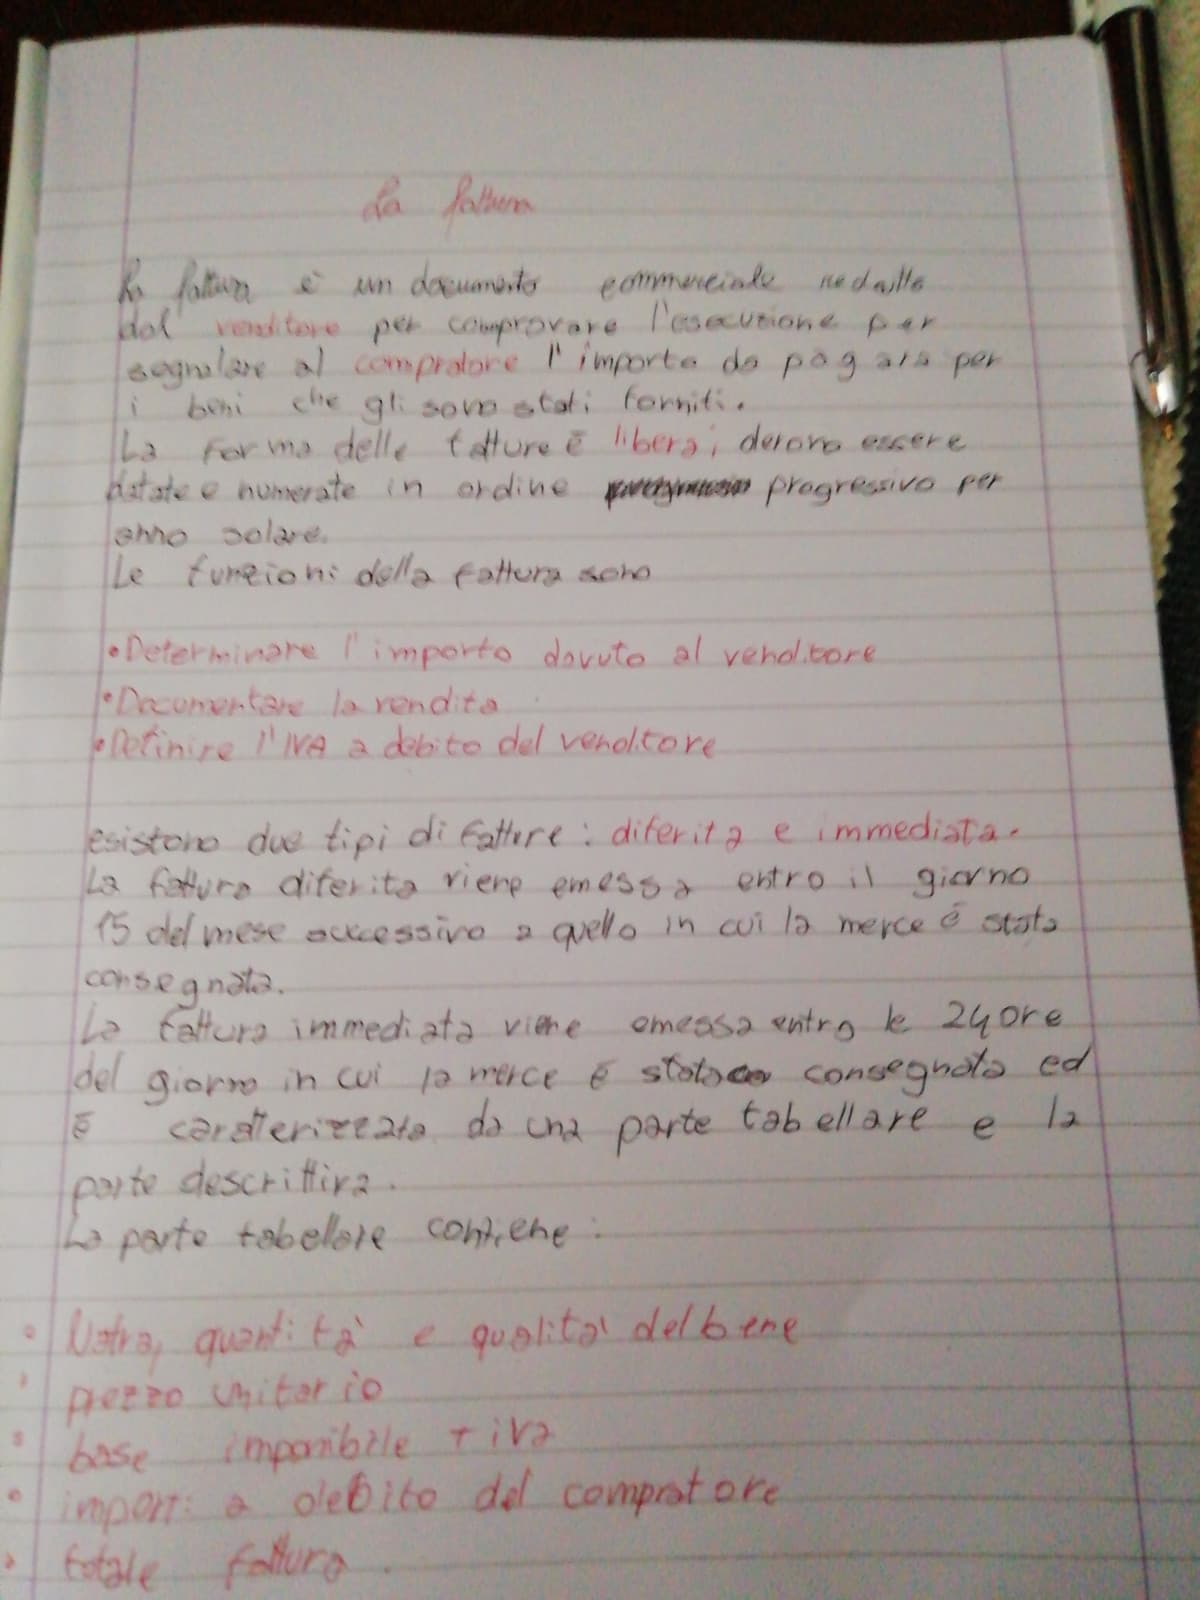 La fattura
La fattura è un documento commerciale redatto
dal venditore per comprovare l'esecuzione per
segnalare al compratore l'importo da pagara per
i beni che gli sono stati forniti.
La forma delle fatture è libera, devono essere
datate e numerate in ordine progressivo per
anno solare.
Le funzioni della fattura sono
•Determinare l'importo dovuto al venditore
•Documentare la vendita
•Definire l'IVA a debito del venditore
esistono due tipi di fatture: diferita e immediata.
La fattura diferita viene emessa entro il giorno
15 del mese successivo a quello in cui la merce è stata
consegnata.
La fattura immediata viene emessa entro le 24 ore
del giorno in cui la merce è stata consegnata ed
è caratterizzata da una parte tabellare e la
parte descrittiva.
La parte tabellare contiene:
• Natra, quantità e qualità del bene
• prezzo unitario
• base imponibile + iva
• importi a debito del compratore
• totale fattura.